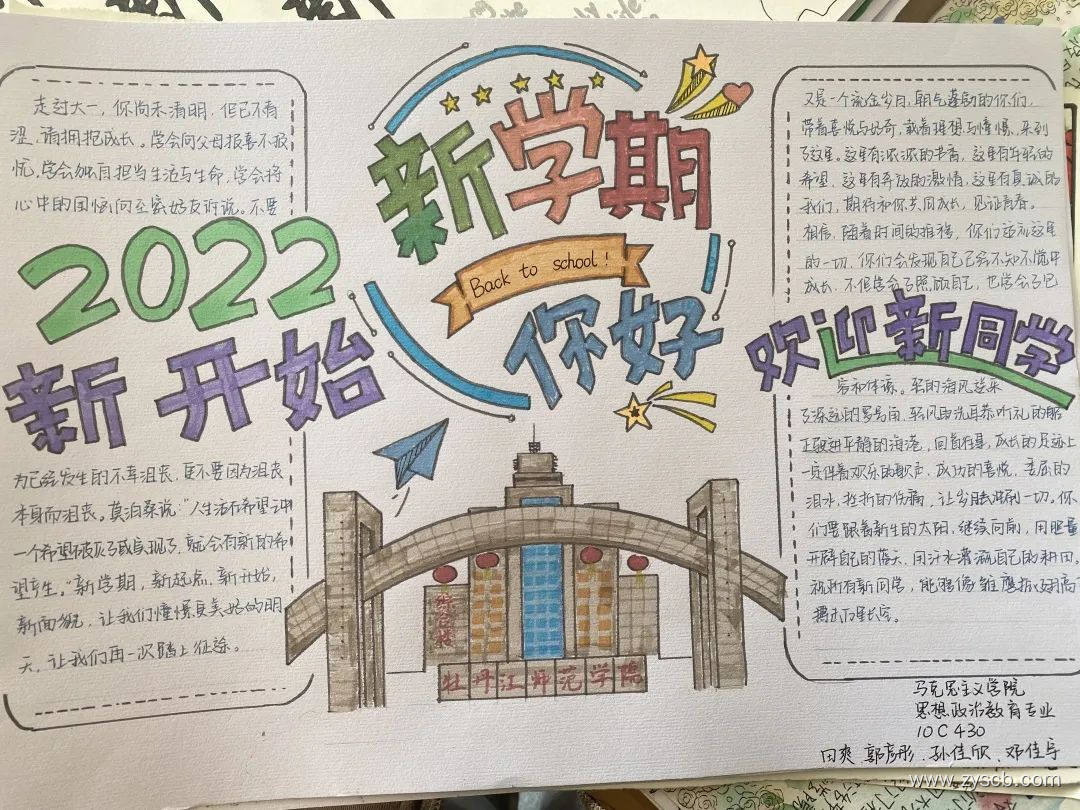 走过大一，你尚未清明，但已不青
涩，请拥抱成长。学会向父母报喜不报
忧，学会独自担当生活与生命，学会将
心中的困恼向至亲好友诉说。不要
2022
新开始
为已经发生的不幸沮丧，更不要因为沮丧
本身而沮丧。莫泊桑说："人生活在希望之中
一个希望破灭了或实现了，就会有新的希
望产生。"新学期，新起点，新开始，
新面貌，让我们憧憬更美好的明
天，让我们再一次踏上征途。
新学期
Back to school!
你好
综合楼
牡丹江师范学院
又是一个流金岁月，朝气蓬勃的你们，
带着喜悦与好奇，载着理想与憧憬，来到
了这里。这里有浓浓的书香，这里有年轻的
希望，这里有奔放的激情，这里有真诚的
我们，期待和你共同成长，见证青春。
相信，随着时间的推移，你们在这里
的一切，你们会发现自己已经不知不觉中
成长，不但学会了照顾自己，也学会了包
欢迎新同学
容和体谅。轻的海风送来
了深远的号角，轻风中洗耳恭听礼的船
正驶进平静的海港，回首往昔，成长的足迹上
一定伴着欢乐的歌声，成功的喜悦，委屈的
泪水，挫折的伤痛，让岁月冲刷一切。你
们要跟着新生的太阳，继续向前，用胆量
开辟自己的蓝天，用汗水灌溉自己的耕田。
祝所有新同学，能够像雏鹰振翅高
翔于万里长空。
马克思主义学院
思想政治教育专业
10C430
田爽、郭彦彤、孙佳欣、邓佳宇
www.zyscb.com